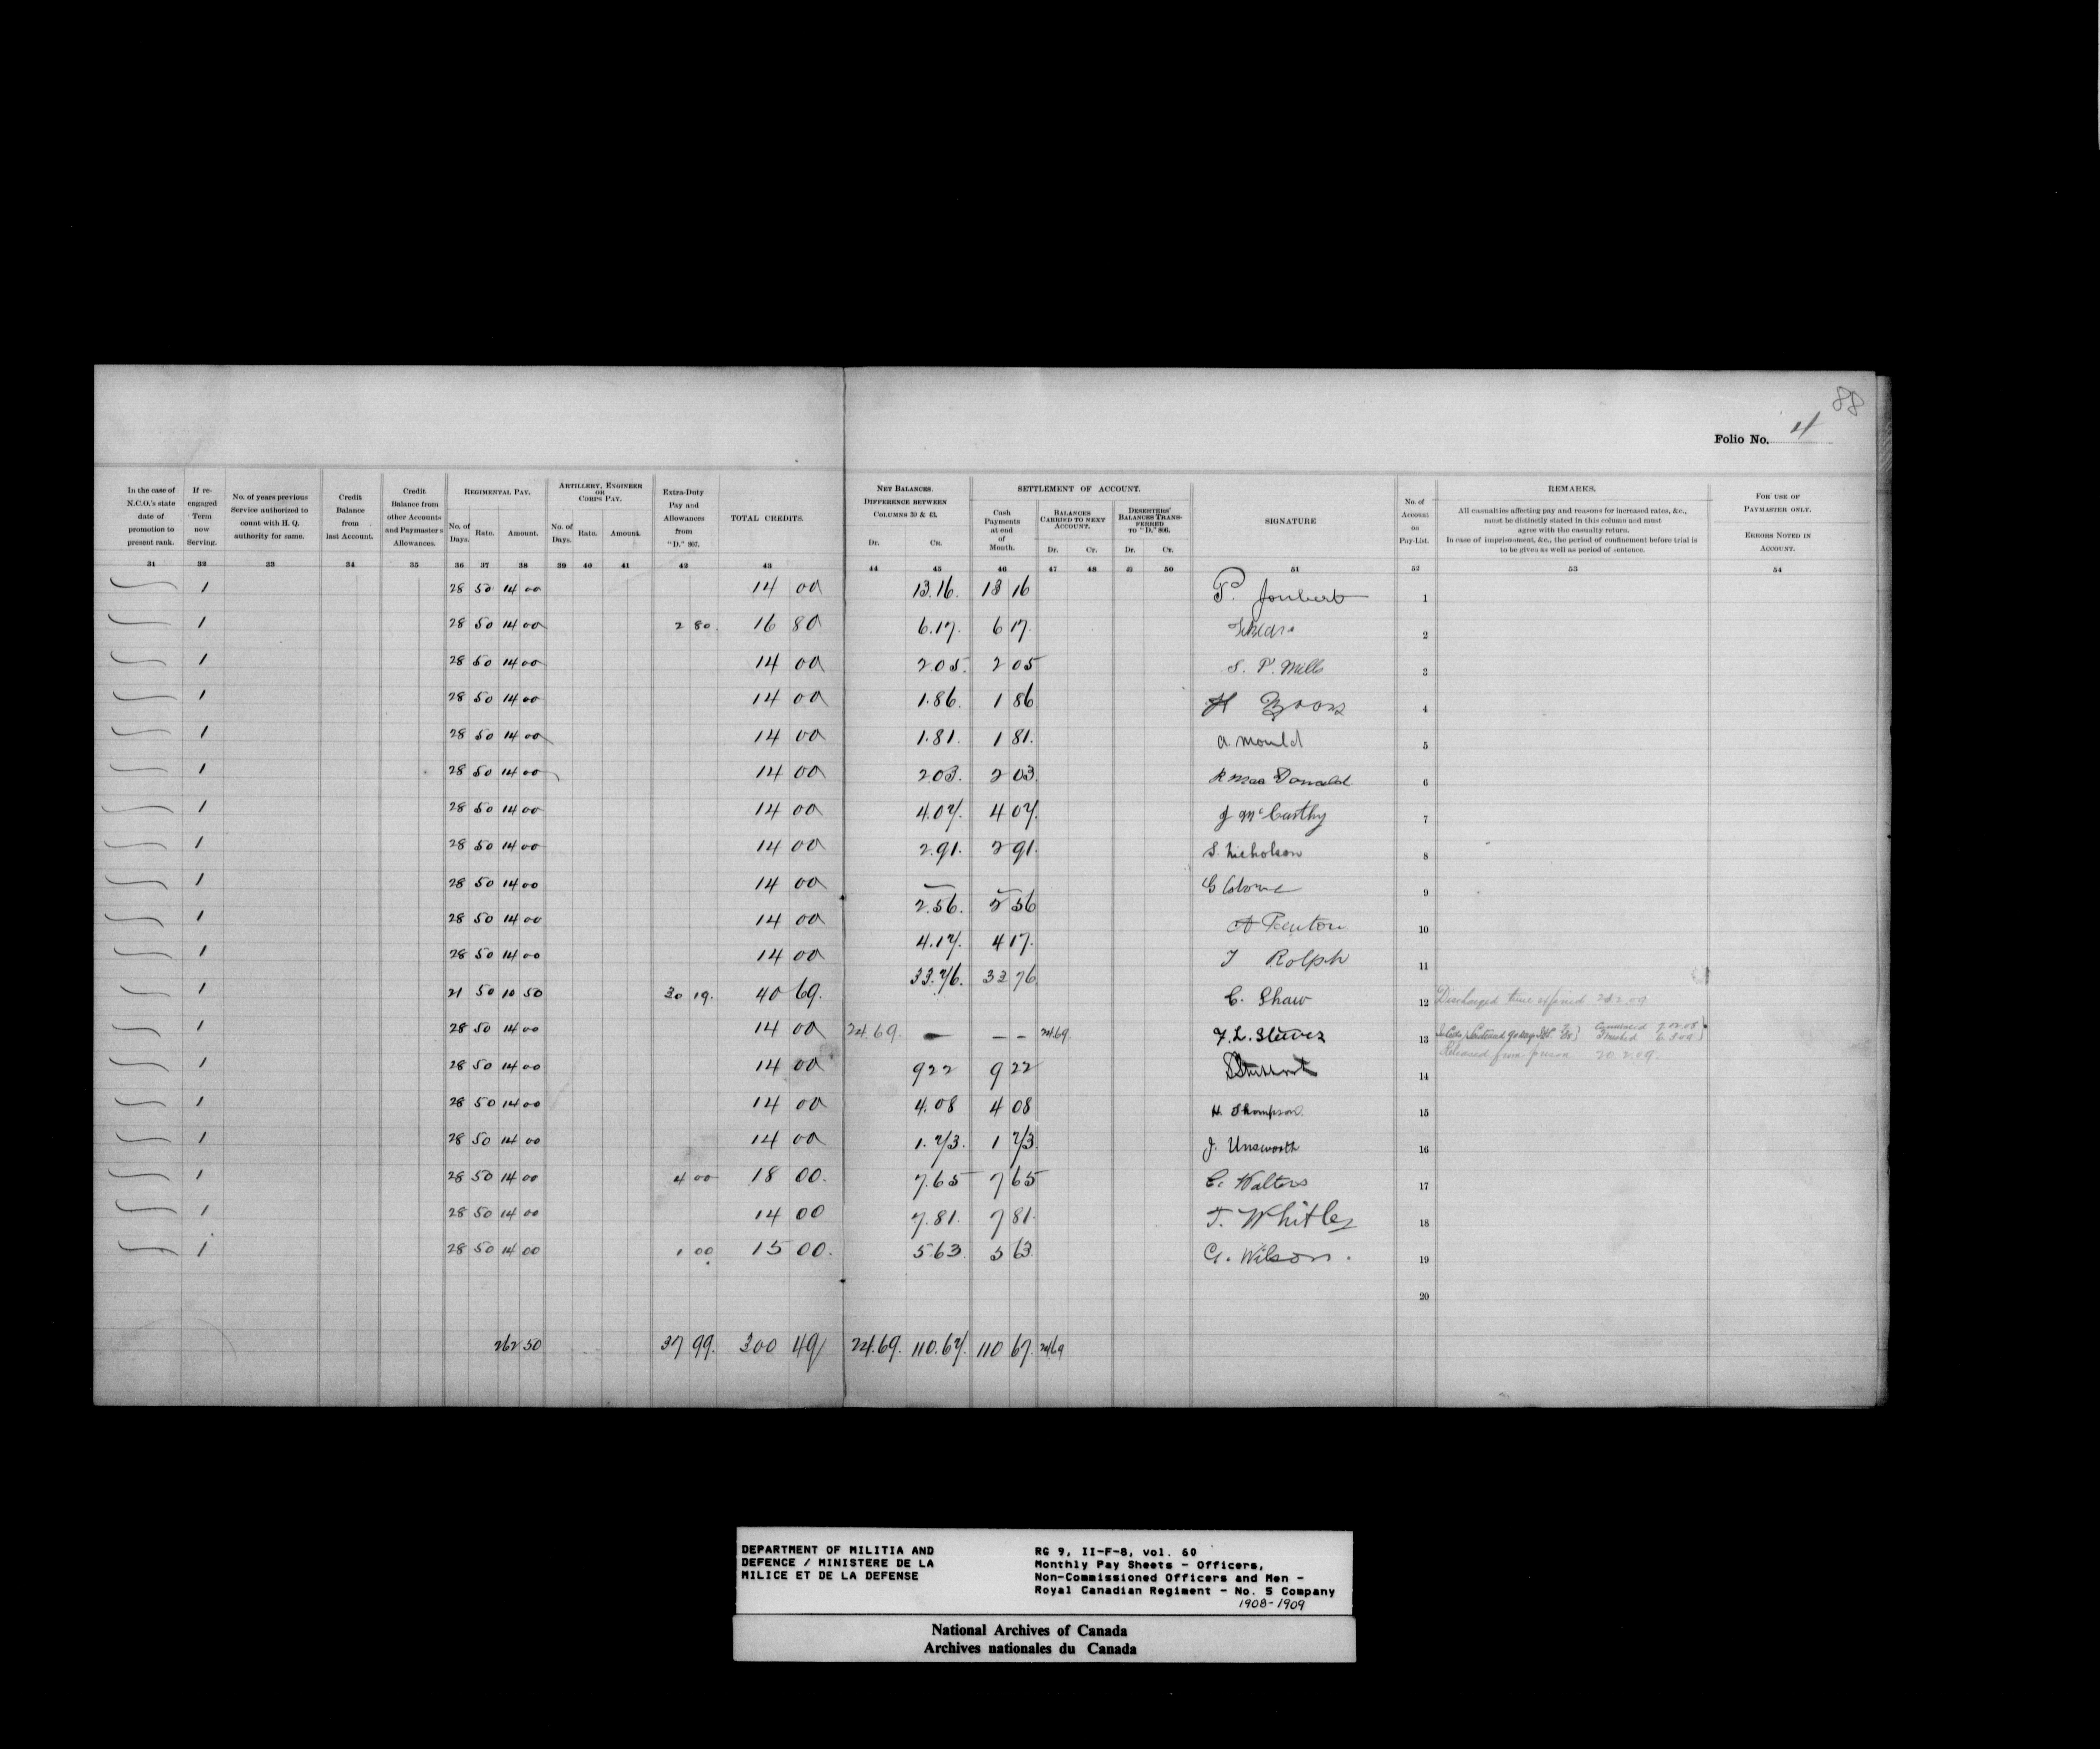 88
Folio No. 4
In the case of N.C.O.'s state date of promotion to present rank.
If re-engaged Term now Serving.
No. of years previous Service authorized to count with H. Q. authority for same.
Credit Balance from last Account.
Credit Balance from other Accounts and Paymasters Allowances.
REGIMENTAL PAY.
No. of Days. Rate. Amount.
ARTILLERY, ENGINEER OR CORPS PAY.
No. of Days. Rate. Amount.
Extra-Duty Pay and Allowances from "D." 807.
TOTAL CREDITS.
NET BALANCES. DIFFERENCE BETWEEN COLUMNS 30 & 43.
Dr. Cr.
SETTLEMENT OF ACCOUNT.
Cash Payments at end of Month.
BALANCES CARRIED TO NEXT ACCOUNT.
Dr. Cr.
DESERTERS' BALANCES TRANSFERRED TO "D." 806.
Dr. Cr.
SIGNATURE
No. of Account on Pay-List.
REMARKS.
All casualties affecting pay and reasons for increased rates, &c., must be distinctly stated in this column and must agree with the casualty return.
In case of imprisonment, &c., the period of confinement before trial is to be given as well as period of sentence.
FOR USE OF PAYMASTER ONLY.
ERRORS NOTED IN ACCOUNT.
31 32 33 34 35 36 37 38 39 40 41 42 43 44 45 46 47 48 49 50 51 52 53 54
1 28 50 14 00 14 00 13.16. 13 16 P. Joubert 1
1 28 50 14 00 2 80. 16 80 6.17. 6 17. 2
1 28 50 14 00 14 00 2 05. 2 05 S. P. Mills 3
1 28 50 14 00 14 00 1.86. 1 86 H 4
1 28 50 14 00 14 00 1.81. 1 81. A. Mould 5
1 28 50 14 00 14 00 2 03. 2 03. R MacDonald 6
1 28 50 14 00 14 00 4.07. 4 07. J McCarthy 7
1 28 50 14 00 14 00 2.91. 2 91. S. Nicholson 8
1 28 50 14 00 14 00 — — G 9
1 28 50 14 00 14 00 2.56. 2 56 A 10
1 28 50 14 00 14 00 4.17. 4 17. T Rolph 11
1 21 50 10 50 30 19. 40 69. 33.76. 33 76 C. Shaw 12 Discharged time expired 21 2 09
1 28 50 14 00 14 00 24 69. — – – 24 69 F. L. Steeves 13
Released from prison 20.2.09.
1 28 50 14 00 14 00 9 22 9 22 14
1 28 50 14 00 14 00 4.08 4 08 H. Thompson 15
1 28 50 14 00 14 00 1.73. 1 73. J. Unsworth 16
1 28 50 14 00 4 00 18 00. 7.65 7 65 C. Walters 17
1 28 50 14 00 14 00 7.81. 7 81. T. Whitley 18
1 28 50 14 00 1 00 15 00. 5 63. 5 63. G. Wilson. 19
20
262 50 37 99. 300 49 24.69. 110.67. 110 67. 24 69
DEPARTMENT OF MILITIA AND
DEFENCE / MINISTERE DE LA
MILICE ET DE LA DEFENSE
RG 9, II-F-8, vol. 60
Monthly Pay Sheets - Officers,
Non-Commissioned Officers and Men -
Royal Canadian Regiment - No. 5 Company
1908-1909
National Archives of Canada
Archives nationales du Canada